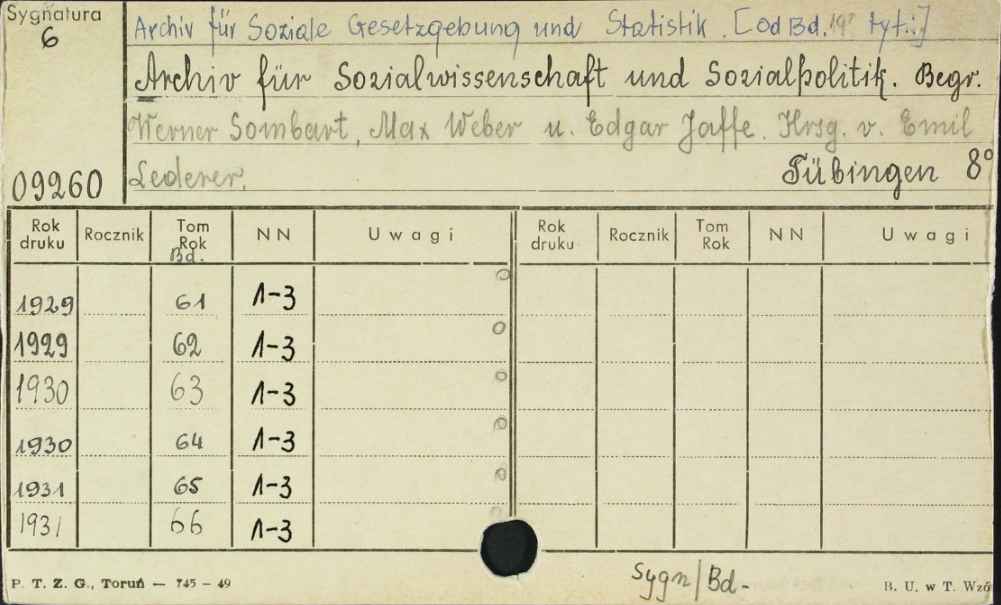 Sygnatura
6
09260
Archiv für Soziale Gesetzgebung und Statistik. [Od Bd. 19 tyt.:]
Archiv für Sozialwissenschaft und Sozialpolitik. Begr.
Werner Sombart, Max Weber u. Edgar Jaffe. Hrsg. v. Emil
Lederer. Tübingen 8°
Rok druku Rocznik Tom Rok Bd. NN Uwagi Rok druku Rocznik Tom Rok NN Uwagi
1929 61 1-3
1929 62 1-3
1930 63 1-3
1930 64 1-3
1931 65 1-3
1931 66 1-3
P. T. Z. G., Toruń — 745 – 49 Sygn/Bd- B. U. w T. Wzó